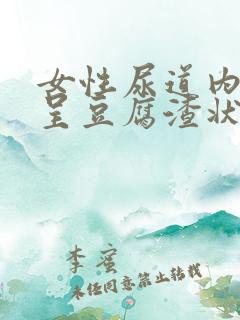 女性尿道内
呈豆腐渣状
李蜜
未经同意禁止转载